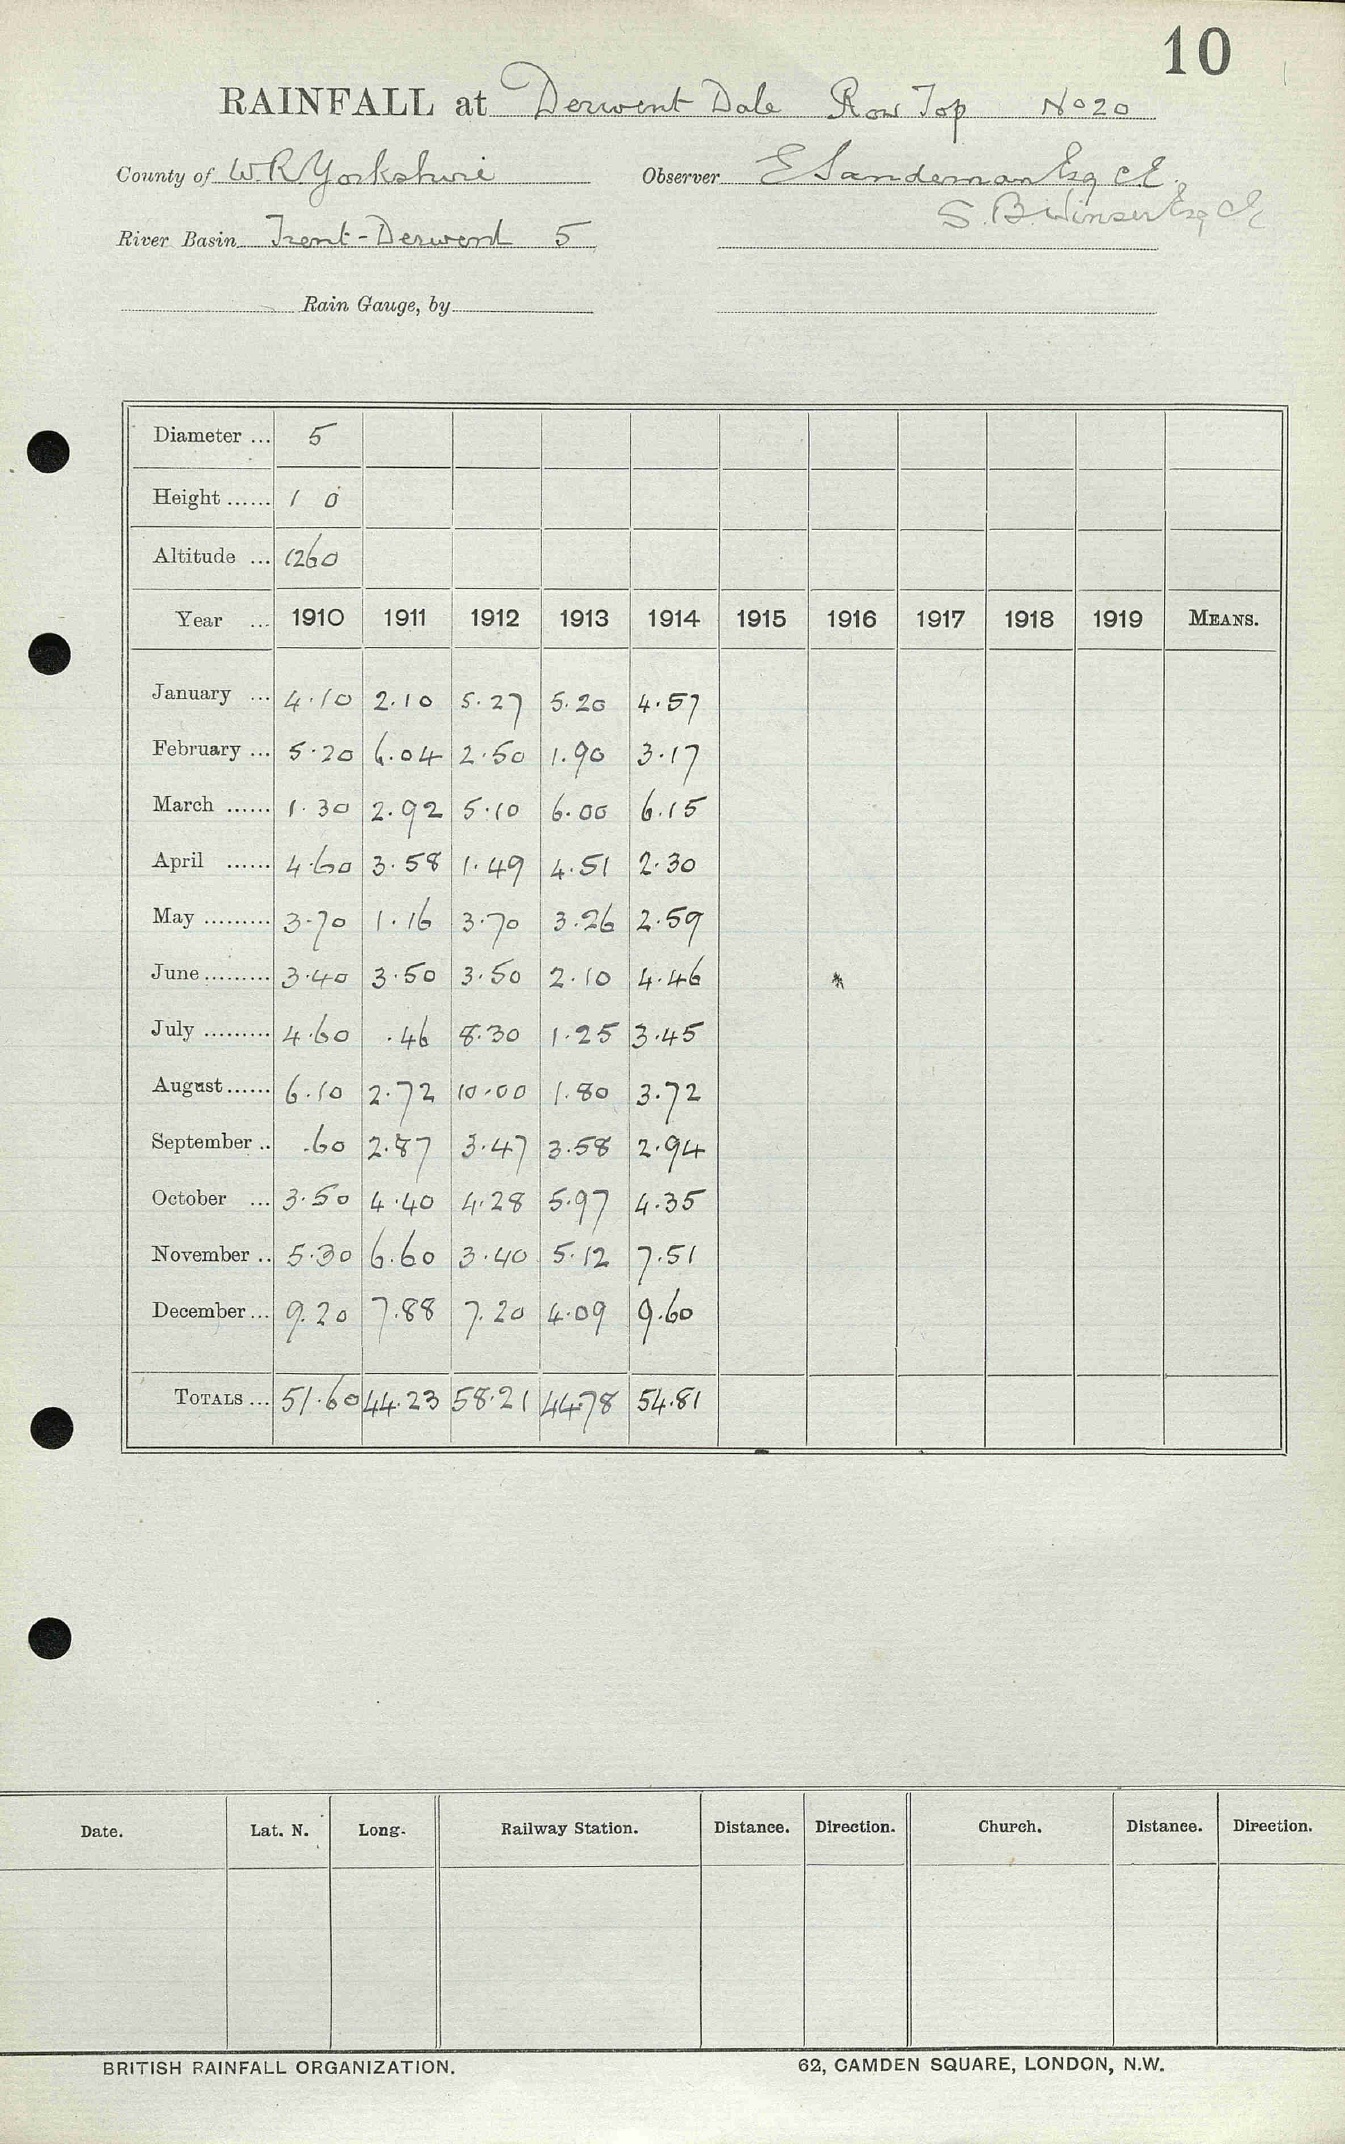 10
RAINFALL at Derwent Dale Row Top No 20
County of W.R. Yorkshire Observer E Sandeman Esq C.E.
S. B. Winser Esq C.E.
River Basin Trent-Derwent 5
Rain Gauge, by
Diameter ... 5
Height ...... 1 0
Altitude ... 1260
Year ... 1910 1911 1912 1913 1914 1915 1916 1917 1918 1919 MEANS.
January ... 4.10 2.10 5.27 5.20 4.57
February ... 5.20 6.04 2.50 1.90 3.17
March ...... 1.30 2.92 5.10 6.00 6.15
April ...... 4.60 3.58 1.49 4.51 2.30
May ......... 3.70 1.16 3.70 3.26 2.59
June ......... 3.40 3.50 3.50 2.10 4.46
July ......... 4.60 .46 8.30 1.25 3.45
August ...... 6.10 2.72 10.00 1.80 3.72
September .. .60 2.87 3.47 3.58 2.94
October ... 3.50 4.40 4.28 5.97 4.35
November .. 5.30 6.60 3.40 5.12 7.51
December ... 9.20 7.88 7.20 4.09 9.60
TOTALS ... 51.60 44.23 58.21 44.78 54.81
Date. Lat. N. Long. Railway Station. Distance. Direction. Church. Distance. Direction.
BRITISH RAINFALL ORGANIZATION. 62, CAMDEN SQUARE, LONDON, N.W.